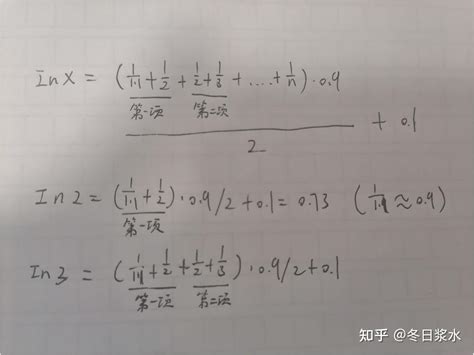 Inx = (1/1.1 + 1/2 + 1/2 + 1/3 + .... + 1/n) · 0.9
第一项 第二项
2 + 0.1
In2 = (1/1.1 + 1/2) · 0.9/2 + 0.1 = 0.73 (1/1.1 ≈ 0.9)
第一项
In3 = (1/1.1 + 1/2 + 1/2 + 1/3) · 0.9/2 + 0.1
第一项 第二项
知乎 @冬日浆水